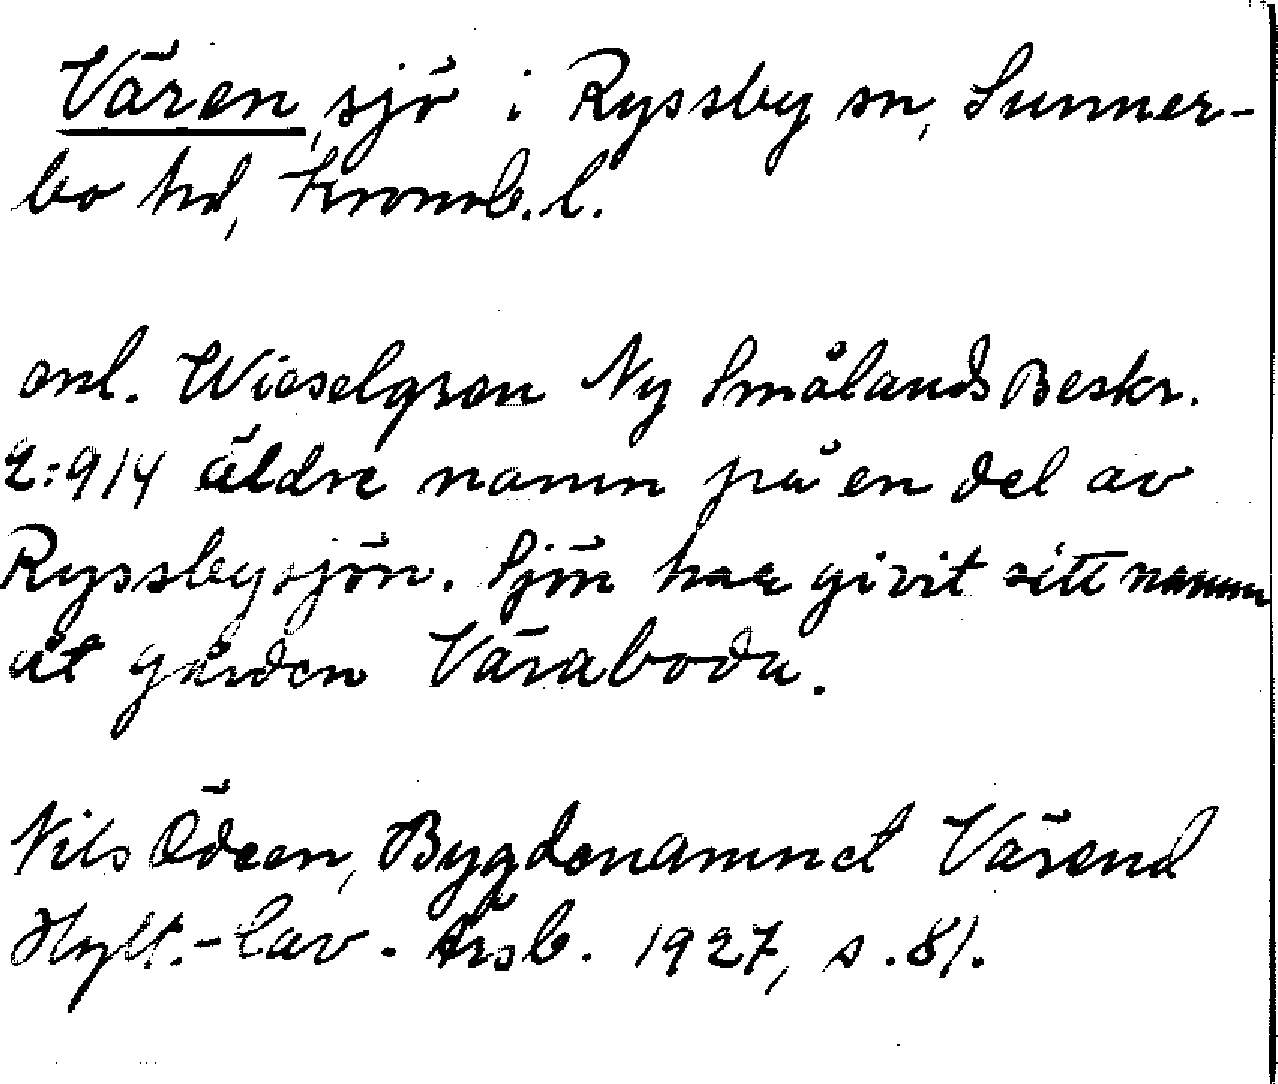 Vären, sjö i Ryssby sn, Sunner-
bo hd, Kronob. l.
enl. Wieselgren Ny Smålands Beskr.
2:914 äldre namn på en del av
Ryssbysjön. Sjön har givit sitt namn
åt gården Väraboda.
Nils Ödeen, Bygdenamnet Värend
Hylt.-Cav. Årsb. 1927, s. 81.